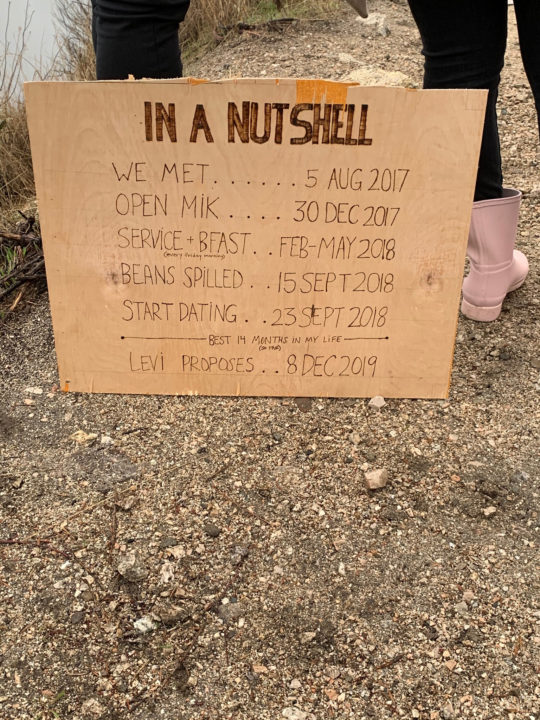 IN A NUTSHELL
WE MET . . . . . . 5 AUG 2017
OPEN MIK . . . . 30 DEC 2017
SERVICE + BFAST . . FEB-MAY 2018
(every friday morning)
BEANS SPILLED . . 15 SEPT 2018
START DATING . . 23 SEPT 2018
BEST 14 MONTHS IN MY LIFE
(so far)
LEVI PROPOSES . . 8 DEC 2019